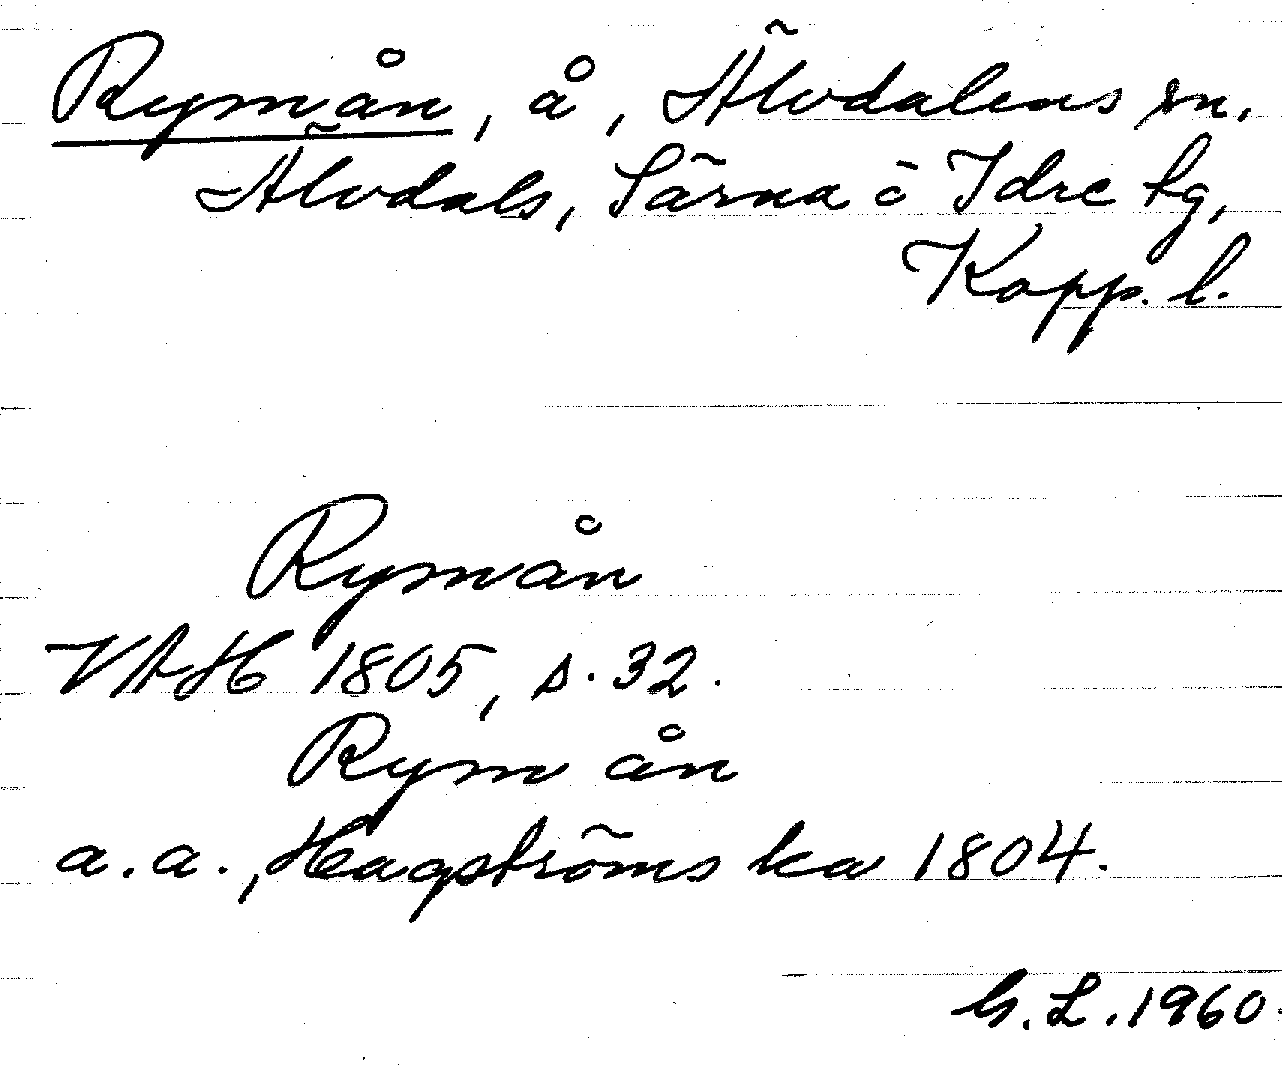 Rymån, å, Älvdalens sn.
Älvdals, Särna o Idre tg,
Kopp. l.
Rymån
VAH 1805, s. 32.
Rymån
a.a., Hagströms ka 1804.
G.L. 1960.